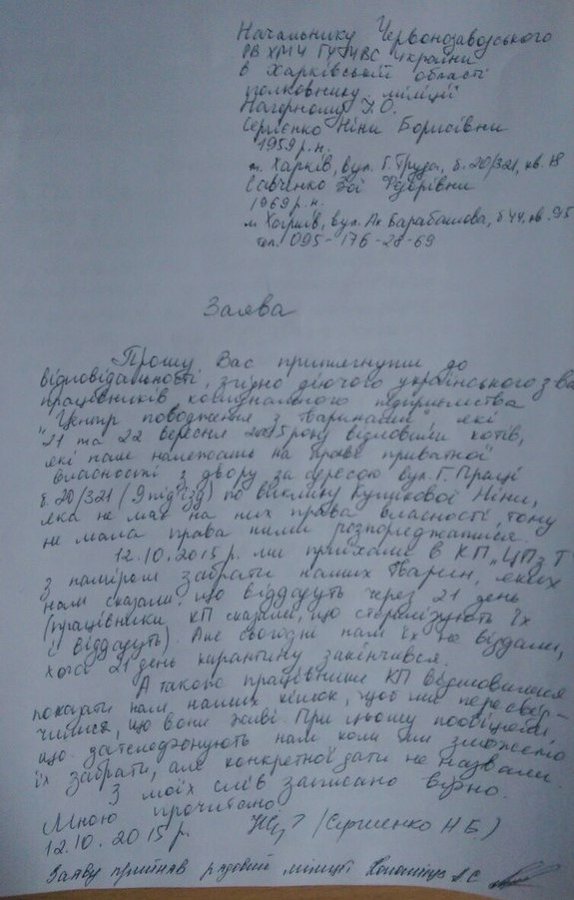 Начальнику Червонозаводського
РВ ХМУ ГУМВС України
в Харківській області
полковнику міліції
Нагорному
Сергієнко Ніни Борисівни
1959 р.н.
м. Харків, вул. Г. Труда, б. 20/321, кв.
Савченко Зої Федорівни
1969 р.н.
м. Харків, вул. Ак Барабашова, б 44, кв. 95
тел. 095-176-28-69
Заява
Прошу Вас притягнути до
відповідальності, згідно діючого українського
працівників комунального підприємства
"Центр поводження з тваринами", які
21 та 22 вересня 2015 року відловили котів,
які нам належать на праві приватної
власності з двору за адресою вул. Г. Праці
б. 20/321 (9 під'їзд) по виклику Ніни,
яка не має на них права власності, тому
не мала права ними розпоряджатися.
12.10.2015 р. ми приїхали в КП "ЦПзТ"
з наміром забрати наших тварин, яких
нам сказали, що віддадуть через 21 день
(працівники КП сказали, що стерилізують їх
і віддадуть). Але сьогодні нам їх не віддали,
хоча 21 день карантину закінчився.
А також працівники КП відмовилися
показати нам наших кішок, щоб ми пересвід-
чилися, що вони живі. При цьому пообіцяли,
що зателефонують нам коли ми зможемо
їх забрати, але конкретної дати не назвали.
З моїх слів записано вірно.
Мною прочитано
12.10.2015 р. (Сергиенко Н Б)
Заяву прийняв рядовий міліції